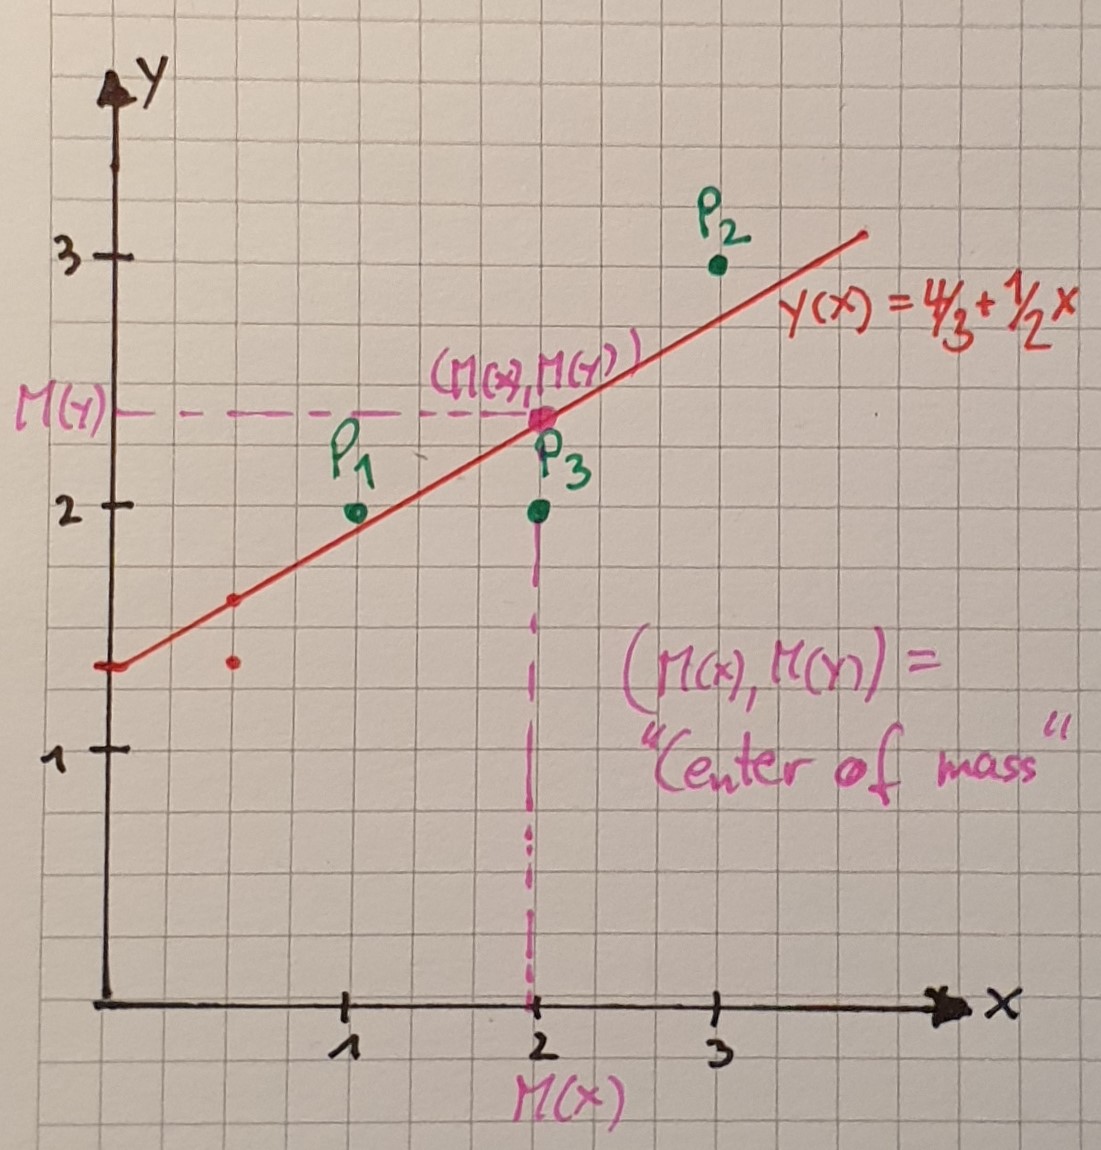 Y
P2
3
y(x) = 4/3 + 1/2 x
(M(x), M(y))
M(y)
P1
P3
2
(M(x), M(y)) =
"Center of mass"
1
X
1 2 3
M(x)